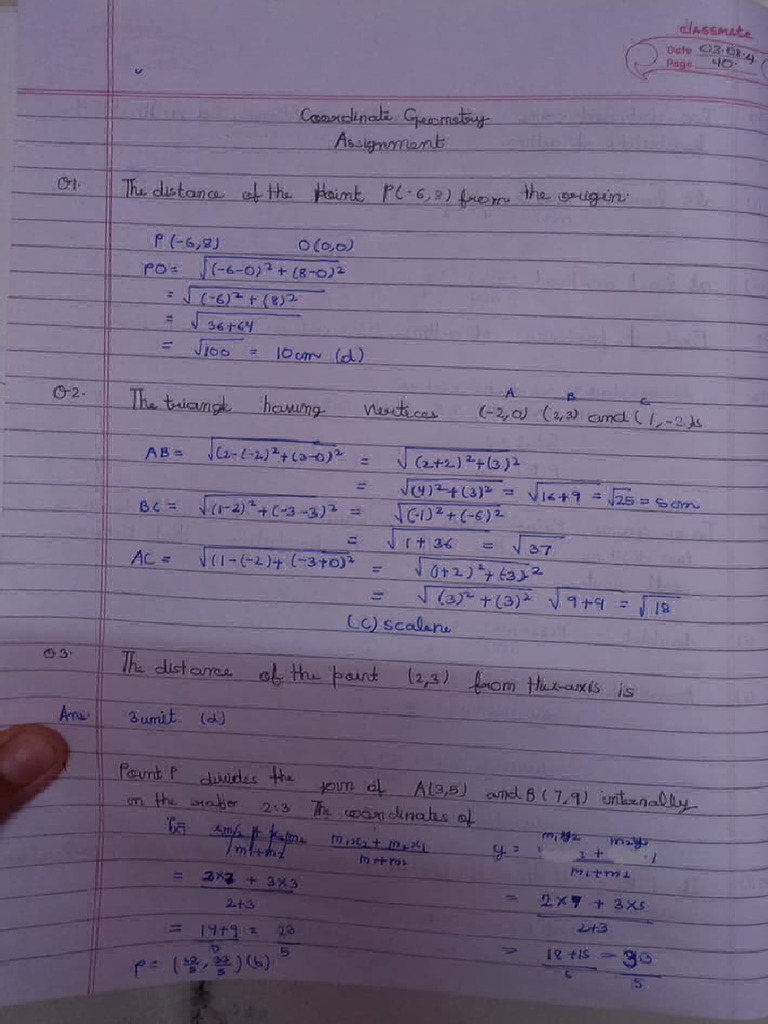 classmate
Date 03.08.4
Page 40.
Coordinate Geometry
Assignment
Q1. The distance of the Point P(-6,8) from the origin.
P(-6,8) O(0,0)
PO = √(-6-0)² + (8-0)²
= √(-6)² + (8)²
= √36+64
= √100 = 10cm (d)
A B C
Q2. The triangle having vertices (-2,0) (2,3) and (1,-2) is
AB = √(2-(-2)²+(3-0)² = √(2+2)²+(3)²
= √(4)²+(3)² = √16+9 = √25 = 5cm
BC = √(1-2)²+(-3-3)² = √(-1)²+(-6)²
= √1+36 = √37
AC = √(1-(-2)+(-3+0)² = √(1+2)²+(-3)²
= √(3)²+(3)² √9+9 = √18
(C) scalene
Q3. The distance of the point (2,3) from the x-axis is
Ans. 3 unit (d)
Point P divides the join of A(3,5) and B(7,9) internally
in the 2:3 The coordinates of
m₁x₂ + m₂x₁ y = m₁y₂ + m₂y₁
m₁+m₂ m₁+m₂
= 2×7 + 3×3 = 2×9 + 3×5
2+3 2+3
= 14+9 = 23 = 18+15 = 33
5 5 5
P = (b)